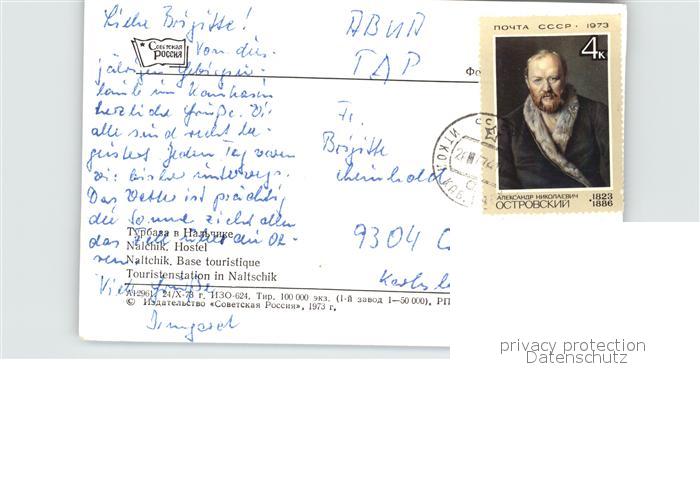 Liebe Brigitte!
АВИА
ГДР
ПОЧТА СССР · 1973
4к
Советская
Россия
Von dies-
jährigen
laub im Kaukasus
herzliche Grüße. Wir
alle sind recht be-
geistert. Jeden Tag waren
wir bisher unterwegs.
Das Wetter ist prächtig
die Sonne zieht allen
das Fell über die Oh-
ren.
Viele Grüße
Irmgard
Fr.
Brigitte
Reinholdt
9304
АЛЕКСАНДР НИКОЛАЕВИЧ
ОСТРОВСКИЙ
1823
1886
Турбаза в Нальчике
Nalchik. Hostel
Naltchik. Base touristique
Touristenstation in Naltschik
24/X-73 г. ИЗО-624. Тир. 100 000 экз. (1-й завод 1—50 000), РП
© Издательство «Советская Россия», 1973 г.
privacy protection
Datenschutz